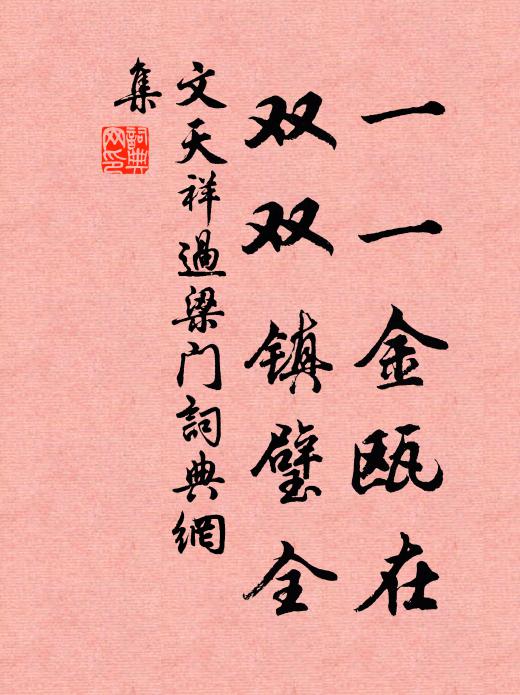 一一金瓯在
双双镇璧全
文天祥過梁门詞典網
集
詞典網印